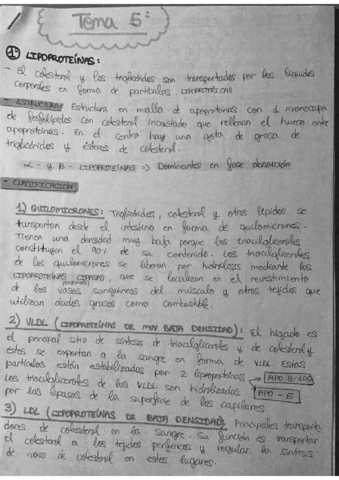 Tema 5:
1) LIPOPROTEÍNAS:
- El colesterol y los triglicéridos son transportados por los líquidos
corporales en forma de partículas lipoproteicas
- ESTRUCTURA: Estructura en malla de apoproteínas con 1 monocapa
de fosfolípidos con colesterol incrustado que rellenan el hueco entre
apoproteínas. En el centro hay una gota de grasa de
triglicéridos y ésteres de colesterol.
α- y β- LIPOPROTEÍNAS => Dominantes en fase absorción
- CLASIFICACIÓN
1) QUILOMICRONES: Triglicéridos, colesterol y otros lípidos se
transporten desde el intestino en forma de quilomicrones.
Tienen una densidad muy baja porque los triacilgliceroles
constituyen el 90% de su contenido. Los triacilgliceroles
de los quilomicrones se liberan por hidrólisis mediante las
LIPOPROTEÍNAS LIPASAS, que se localizan en el revestimiento
de los vasos sanguíneos del músculo y otros tejidos que
utilizan ácidos grasos como combustible
2) VLDL (LIPOPROTEÍNAS DE MUY BAJA DENSIDAD): El hígado es
el principal sitio de síntesis de triacilgliceroles y de colesterol y
éstos se exportan a la sangre en forma de VLDL. Estas
partículas están estabilizadas por 2 lipoproteínas → APO B-100
Los triacilgliceroles de las VLDL son hidrolizadas → APO - E
por las lipasas de la superficie de los capilares
3) LDL (LIPOPROTEÍNAS DE BAJA DENSIDAD): Principales transporta
dores de colesterol en la sangre. Su función es transportar
el colesterol a los tejidos periféricos y regular la síntesis
de novo de colesterol en estos lugares.